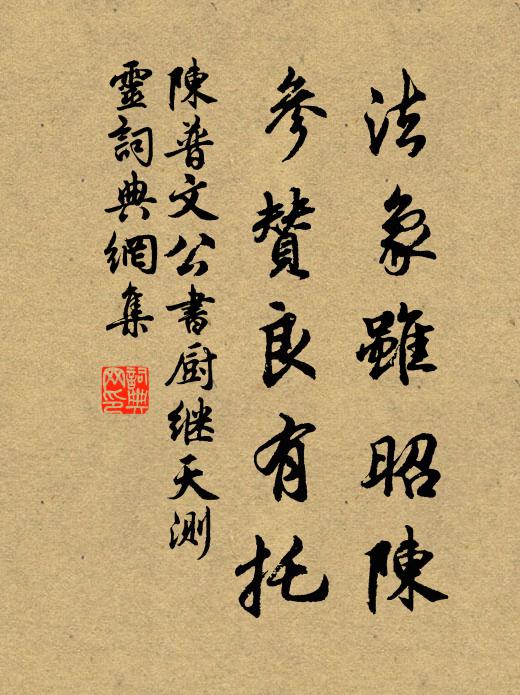 法象雖昭陳
參賛良有托
陳普文公書厨继天测
靈詞典網集
詞典網印